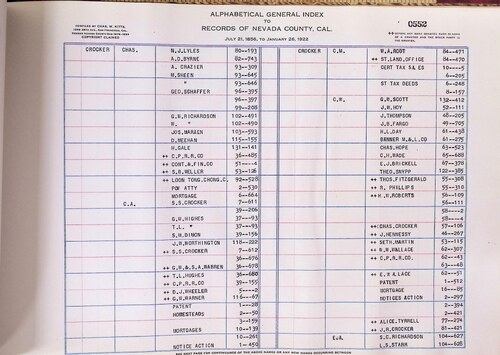 COMPILED BY CHAS. W. SITTS,
COPYRIGHT CLAIMED
ALPHABETICAL GENERAL INDEX
TO
RECORDS OF NEVADA COUNTY, CAL.
JULY 21, 1856, TO JANUARY 28, 1922
0552
CROCKER CHAS. N.J.LYLES 80--193 CROCKER C.M. W.A.ROOT 84--471
A.D.BYRNE 82--743 ++ ST.LAND.OFFICE 84--470
A. CRAZIER 93--309 CERT TAX SALES 10---5
M.SHEEN 93--645 6--205
" 93--646 ST TAX DEEDS 6--248
GEO.SCHAFFER 96--395 8--157
96--397 C.R. G.W.SCOTT 132--412
99--208 J.H.HOY 52--111
G.N.RICHARDSON 102--491 J.THOMPSON 48--205
R. " 102--499 J.D.FARGO 49--705
JOS.MARGEN 103--593 H.L.DAY 61--438
D.MEEHAN 115--155 BANNER M.&.L.CO 61--275
H.GALE 131--141 CHAS.HOPE 63--523
++ C.P.R.R.CO 36--485 G.H.WADE 65--688
++ CONT.&.FIN.CO 51---4 E.J.BRICKELL 67--370
++ S.D.WELLER 53--126 THEO.SNYPP 122--385
++ LOON TONG.CHONG.C. 92--528 ++ THOS.FITZGERALD 55--308
POW ATTY 2--530 ++ R. PHILLIPS 55--310
MORTGAGE 6--664 ++ H.D.ROBERTS 56--109
C.A. S.S.CROCKER 7--611 56--111
39--206 58---2
G.W.HUGHES 37--93 58---4
T.L. " 37--93 ++CHAS.CROCKER 57--106
S.H.DIXON 39--156 ++ J.HENNESSY 62--267
J.R.WORTHINGTON 118--222 ++ SETH.MARTIN 53--115
++ S.S.CROCKER 7--612 ++ R.W.WALLACE 62--307
36--676 ++ C.P.R.R.CO. 62--43
++ G.H.&.S.A.WARREN 36--678 63--48
++ T.L.HUGHES 36--680 ++ E.W & LACE 62--51
++ C.P.R.R.CO 39--155 PATENT 1--512
++ D.J.WHEELER 5---2 MORTGAGE 16--85
++ G.W.WARNER 116--67 NOTICES ACTION 2--297
PATENT 1--28 2--394
HOMESTEADS 2--50 2--421
3--159 ++ ALICE.TYRRELL 77--274
MORTGAGES 10--139 ++ J.R.CROCKER 81--421
10--261 E.A. S.C.RICHARDSON 104--627
NOTICE ACTION 1--450 L.S.STARR 104--628
SEE NEXT PAGE FOR CONTINUANCE OF THE ABOVE NAMES OR ANY NEW NAMES OCCURRING BETWEEN